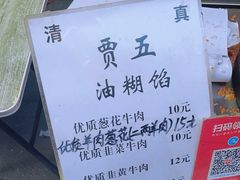 清 真
贾五
油糊馅
优质葱花牛肉 10元
优质羊肉葱花(二两羊肉)15元
优质韭菜牛肉 10元
优质韭黄牛肉 12元
扫码领